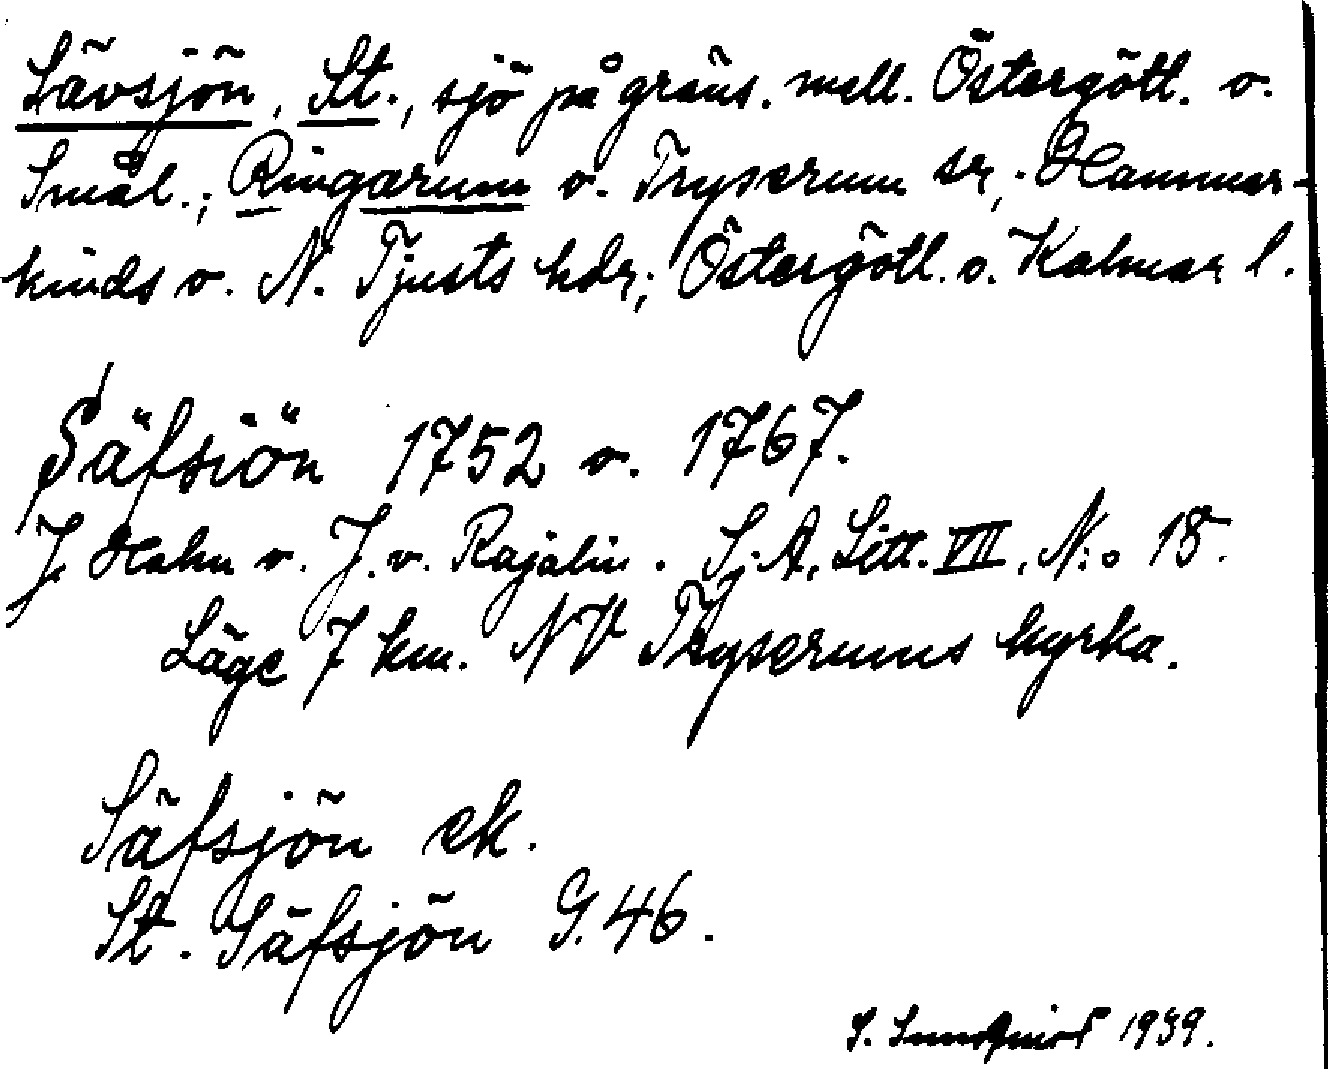 Sävsjön, St., sjö på gräns. mell. Östergötl. o.
Smål.; Ringarum o. Tryserum sr; Hammar-
kinds o. N. Tjusts hdr; Östergötl. o. Kalmar l.
Säfsiön 1752 o. 1767.
J. Hahn o. J. v. Rajalin. Sj. A, Litt. VII, N:o 18.
Läge 7 km. NV Tryserums kyrka.
Säfsjön ek.
St. Säfsjön G. 46.
S. 1939.